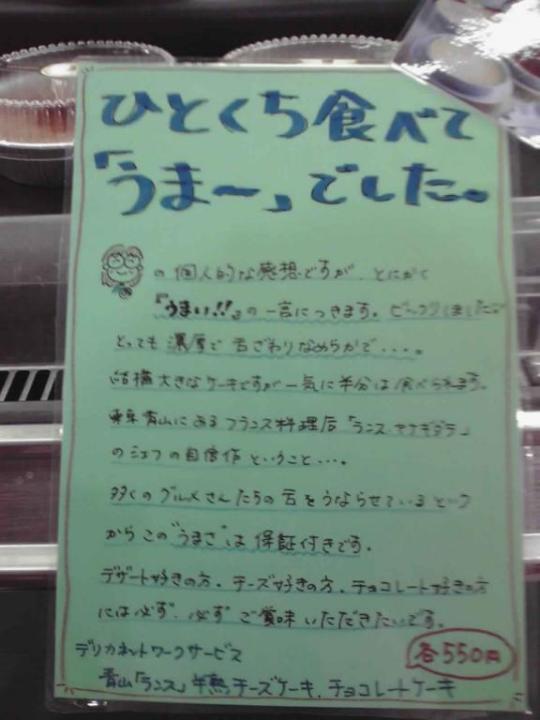 ひとくち食べて
「うま〜」でした。
の個人的な感想ですが、とにかく
『うまい!!』の一言につきます。ビックリしました。
とっても濃厚で舌ざわりなめらかで・・・。
結構大きなケーキですが一気に半分は食べられます。
東京青山にあるフランス料理店「ランス ヤナギダテ」
のシェフの自信作ということ・・・。
多くのグルメさんたちの舌をうならせているという
からこの"うまさ"は保証付きです。
デザート好きの方、チーズ好きの方、チョコレート好きの方
には必ず、必ずご賞味いただきたいです。
デリカネットワークサービス
各550円
青山「ランス」半熟チーズケーキ、チョコレートケーキ